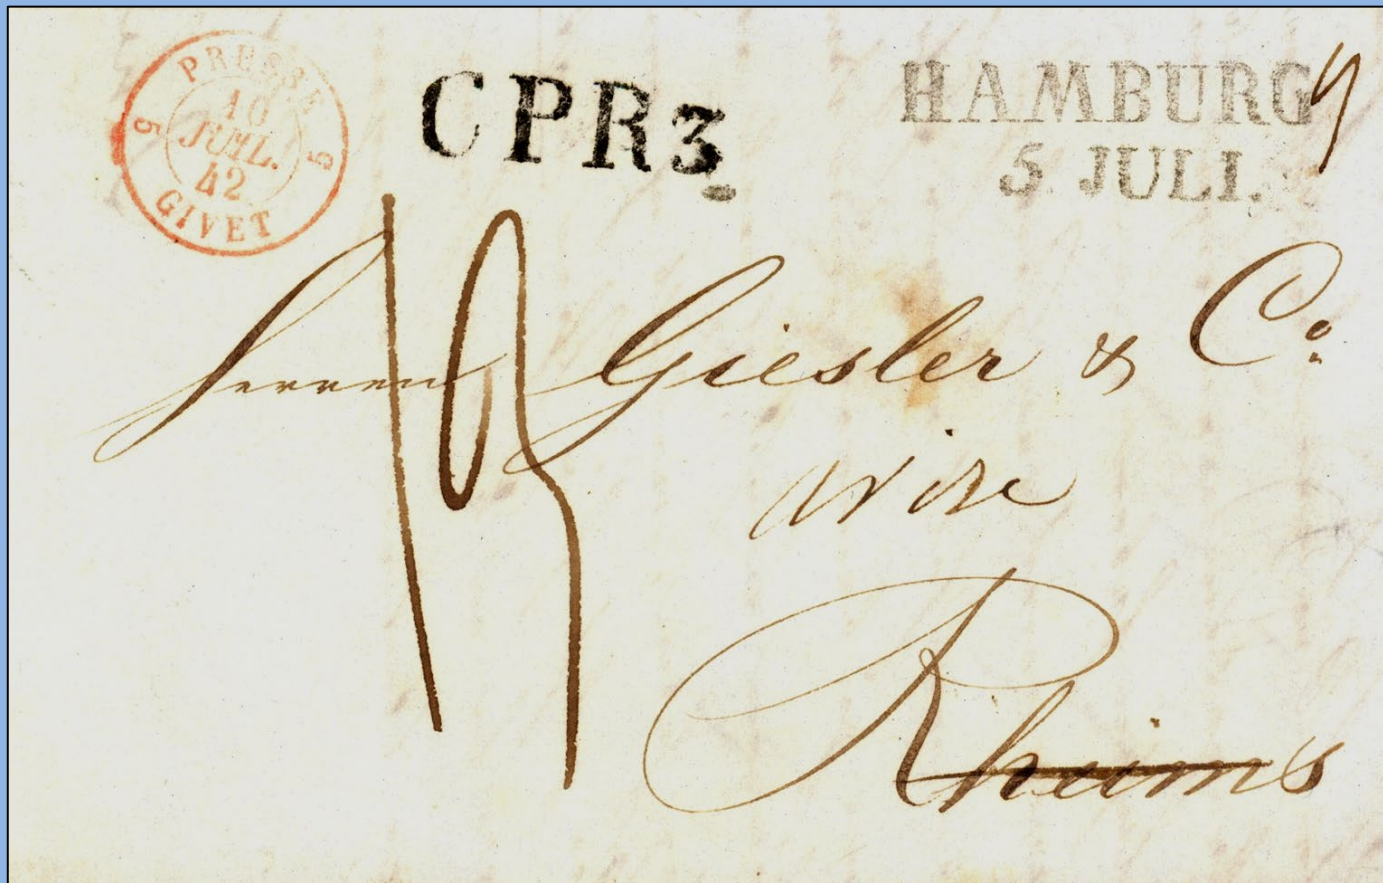 PRUSSE
5
10
JUIL.
42
5
GIVET
CPR3
HAMBURG
5 JULI.
9
19
Herren Giesler & Co.
Rheims